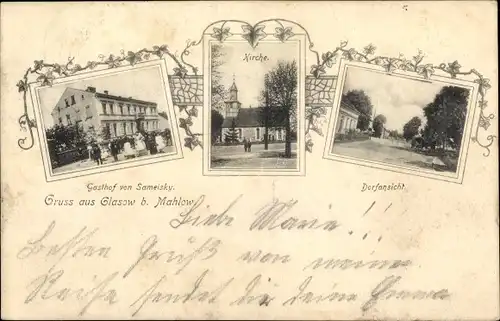 Kirche.
Gasthof von Sameisky.
Dorfansicht.
Gruss aus Glasow b. Mahlow
Liebe Marie!!
Besten Gruß von meiner
Reise sendet dir deine Emma